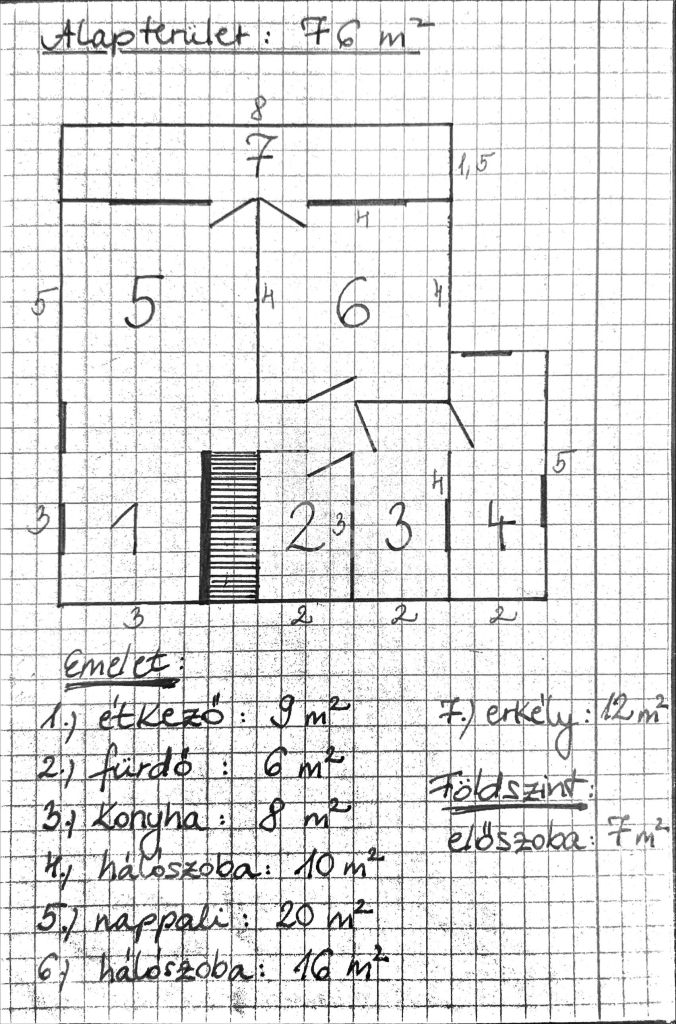 Alapterület: 76 m²
8
7
1,5
4
5
5
4
6
4
5
4
3
1
2
3
3
4
3
2
2
2
Emelet:
1.) étkező: 9 m²
2.) fürdő: 6 m²
3.) Konyha: 8 m²
4.) hálószoba: 10 m²
5.) nappali: 20 m²
6.) hálószoba: 16 m²
7.) erkély: 12 m²
Földszint:
előszoba: 7 m²